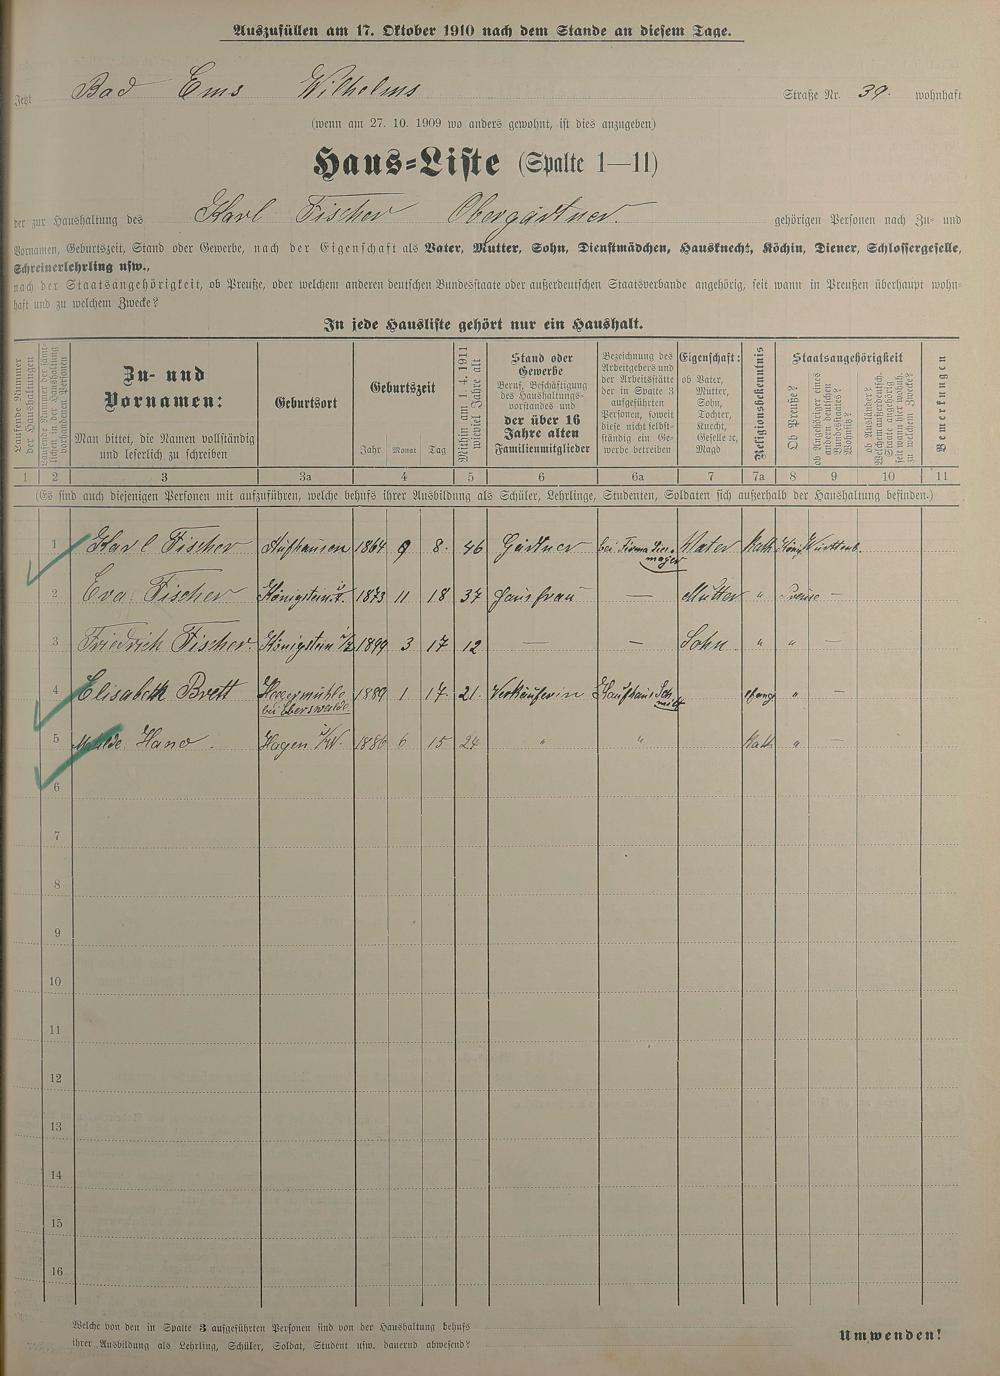 Auszufüllen am 17. Oktober 1910 nach dem Stande an diesem Tage.
Jetzt Bad Ems Wilhelms Straße Nr. 39. wohnhaft
(wenn am 27. 10. 1909 wo anders gewohnt, ist dies anzugeben)
Haus-Liste (Spalte 1—11)
der zur Haushaltung des Karl Fischer Obergärtner. gehörigen Personen nach Zu- und
Vornamen, Geburtszeit, Stand oder Gewerbe, nach der Eigenschaft als Vater, Mutter, Sohn, Dienstmädchen, Hausknecht, Köchin, Diener, Schlossergeselle,
Schreinerlehrling usw.,
nach der Staatsangehörigkeit, ob Preuße, oder welchem anderen deutschen Bundesstaate oder außerdeutschen Staatsverbande angehörig, seit wann in Preußen überhaupt wohn-
haft und zu welchem Zwecke?
In jede Hausliste gehört nur ein Haushalt.
Laufende Nummer der Haushaltungen
Laufende Nummer der sämt-
lichen in der Haushaltung
vorhandenen Personen
Zu- und
Vornamen:
Man bittet, die Namen vollständig
und leserlich zu schreiben
Geburtsort
Geburtszeit
Jahr Monat Tag
Mithin am 1. 4. 1911
wieviel Jahre alt
Stand oder
Gewerbe
Beruf, Beschäftigung
des Haushaltungs-
vorstandes und
der über 16
Jahre alten
Familienmitglieder
Bezeichnung des
Arbeitgebers und
der Arbeitsstätte
der in Spalte 3
aufgeführten
Personen, soweit
diese nicht selbst-
ständig ein Ge-
werbe betreiben
Eigenschaft:
ob Vater,
Mutter,
Sohn,
Tochter,
Knecht,
Geselle ec,
Magd
Religionsbekenntnis
Staatsangehörigkeit
Ob Preuße?
ob Angehöriger eines
andern deutschen
Bundesstaates?
Wohnsitz?
ob Ausländer?
Welchem außerdeutsch.
Staate angehörig
seit wann hier wohnh.
zu welchem Zwecke?
Bemerkungen
1 2 3 3a 4 5 6 6a 7 7a 8 9 10 11
(Es sind auch diejenigen Personen mit aufzuführen, welche behufs ihrer Ausbildung als Schüler, Lehrlinge, Studenten, Soldaten sich außerhalb der Haushaltung befinden.)
1 Karl Fischer Aufhausen 1864 9 8. 46 Gärtner bei Firma Vater Kath König Württenb.
2 Eva Fischer Königstein i/T. 1873 11 18 37 Hausfrau — Mutter " Preuße —
3 Friedrich Fischer. Königstein i/T 1899 3 17 12 — — Sohn. " " —
4 Elisabeth Brett Heegermühle bei Eberswalde 1889 1 17. 21. Verkäuferin Kaufhaus Schmitt evang. " —
5 Hano. Hagen i/W. 1886 6 15 24 " " Kath " —
6
7
8
9
10
11
12
13
14
15
16
Welche von den in Spalte 3 aufgeführten Personen sind von der Haushaltung behufs
ihrer Ausbildung als Lehrling, Schüler, Soldat, Student usw. dauernd abwesend?
Umwenden!